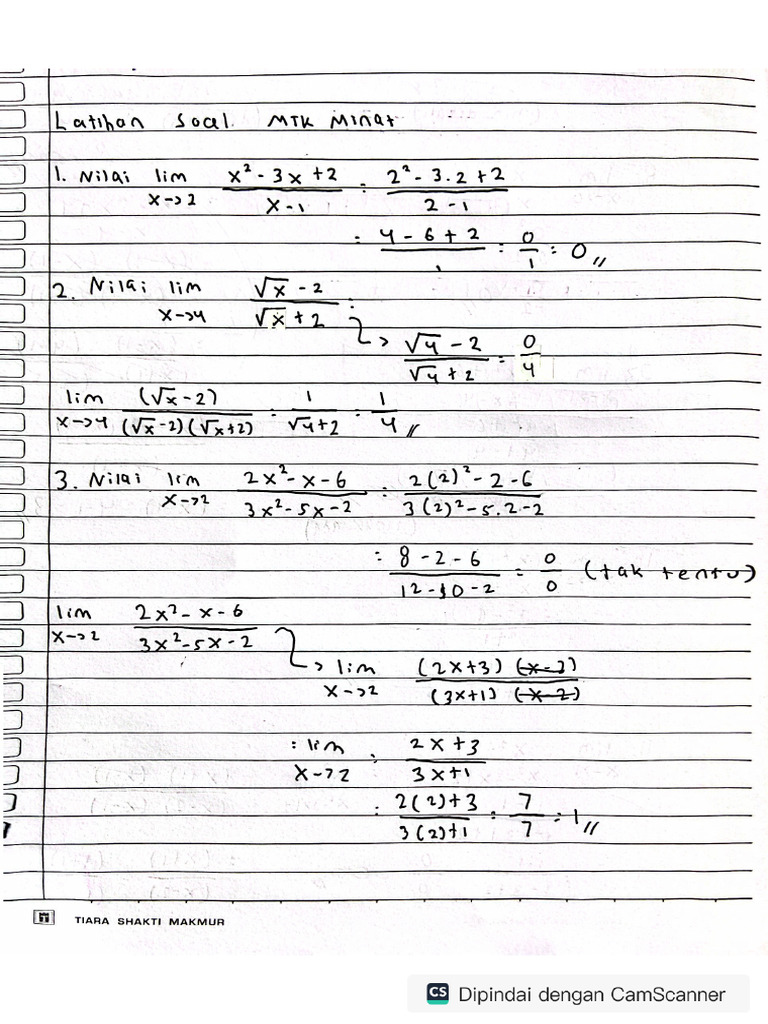 Latihan Soal. MTK Minat
1. Nilai lim x→2 (x² - 3x + 2)/(x - 1) = (2² - 3.2 + 2)/(2 - 1)
= (4 - 6 + 2)/1 = 0/1 = 0 //
2. Nilai lim x→4 (√x - 2)/(√x + 2) =
↳ (√4 - 2)/(√4 + 2) = 0/4
lim x→4 (√x - 2)/((√x - 2)(√x + 2)) = 1/(√4 + 2) = 1/4 //
3. Nilai lim x→2 (2x² - x - 6)/(3x² - 5x - 2) = (2(2)² - 2 - 6)/(3(2)² - 5.2 - 2)
= (8 - 2 - 6)/(12 - 10 - 2) = 0/0 (tak tentu)
lim x→2 (2x² - x - 6)/(3x² - 5x - 2)
↳ lim x→2 ((2x + 3) (x - 2))/((3x + 1) (x - 2))
: lim x→2 : (2x + 3)/(3x + 1)
= (2(2) + 3)/(3(2) + 1) = 7/7 = 1 //
TIARA SHAKTI MAKMUR
CS Dipindai dengan CamScanner